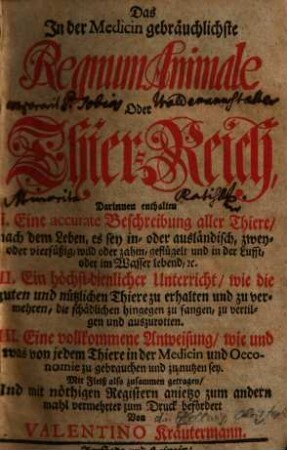 Das
In der Medicin gebräuchlichste
Regnum Animale
Oder
Thier-Reich,
Minorita
Darinnen enthalten
I. Eine accurate Beschreibung aller Thiere/
nach dem Leben, es sey in- oder ausländisch, zwey-
oder vierfüßig, wild oder zahm, geflügelt und in der Lufft,
oder im Wasser lebend, &c.
II. Ein höchst-dienlicher Unterricht/ wie die
guten und nützlichen Thiere zu erhalten und zu ver-
mehren, die schädlichen hingegen zu fangen, zu vertil-
gen und auszurotten.
III. Eine vollkommene Anweisung/ wie und
was von jedem Thiere in der Medicin und Oeco-
nomie zu gebrauchen und zu nutzen sey.
Mit Fleiß also zusammen getragen/
Und mit nöthigen Registern anietzo zum andern
mahl vermehrter zum Druck befördert
Von
VALENTINO Kräutermann.